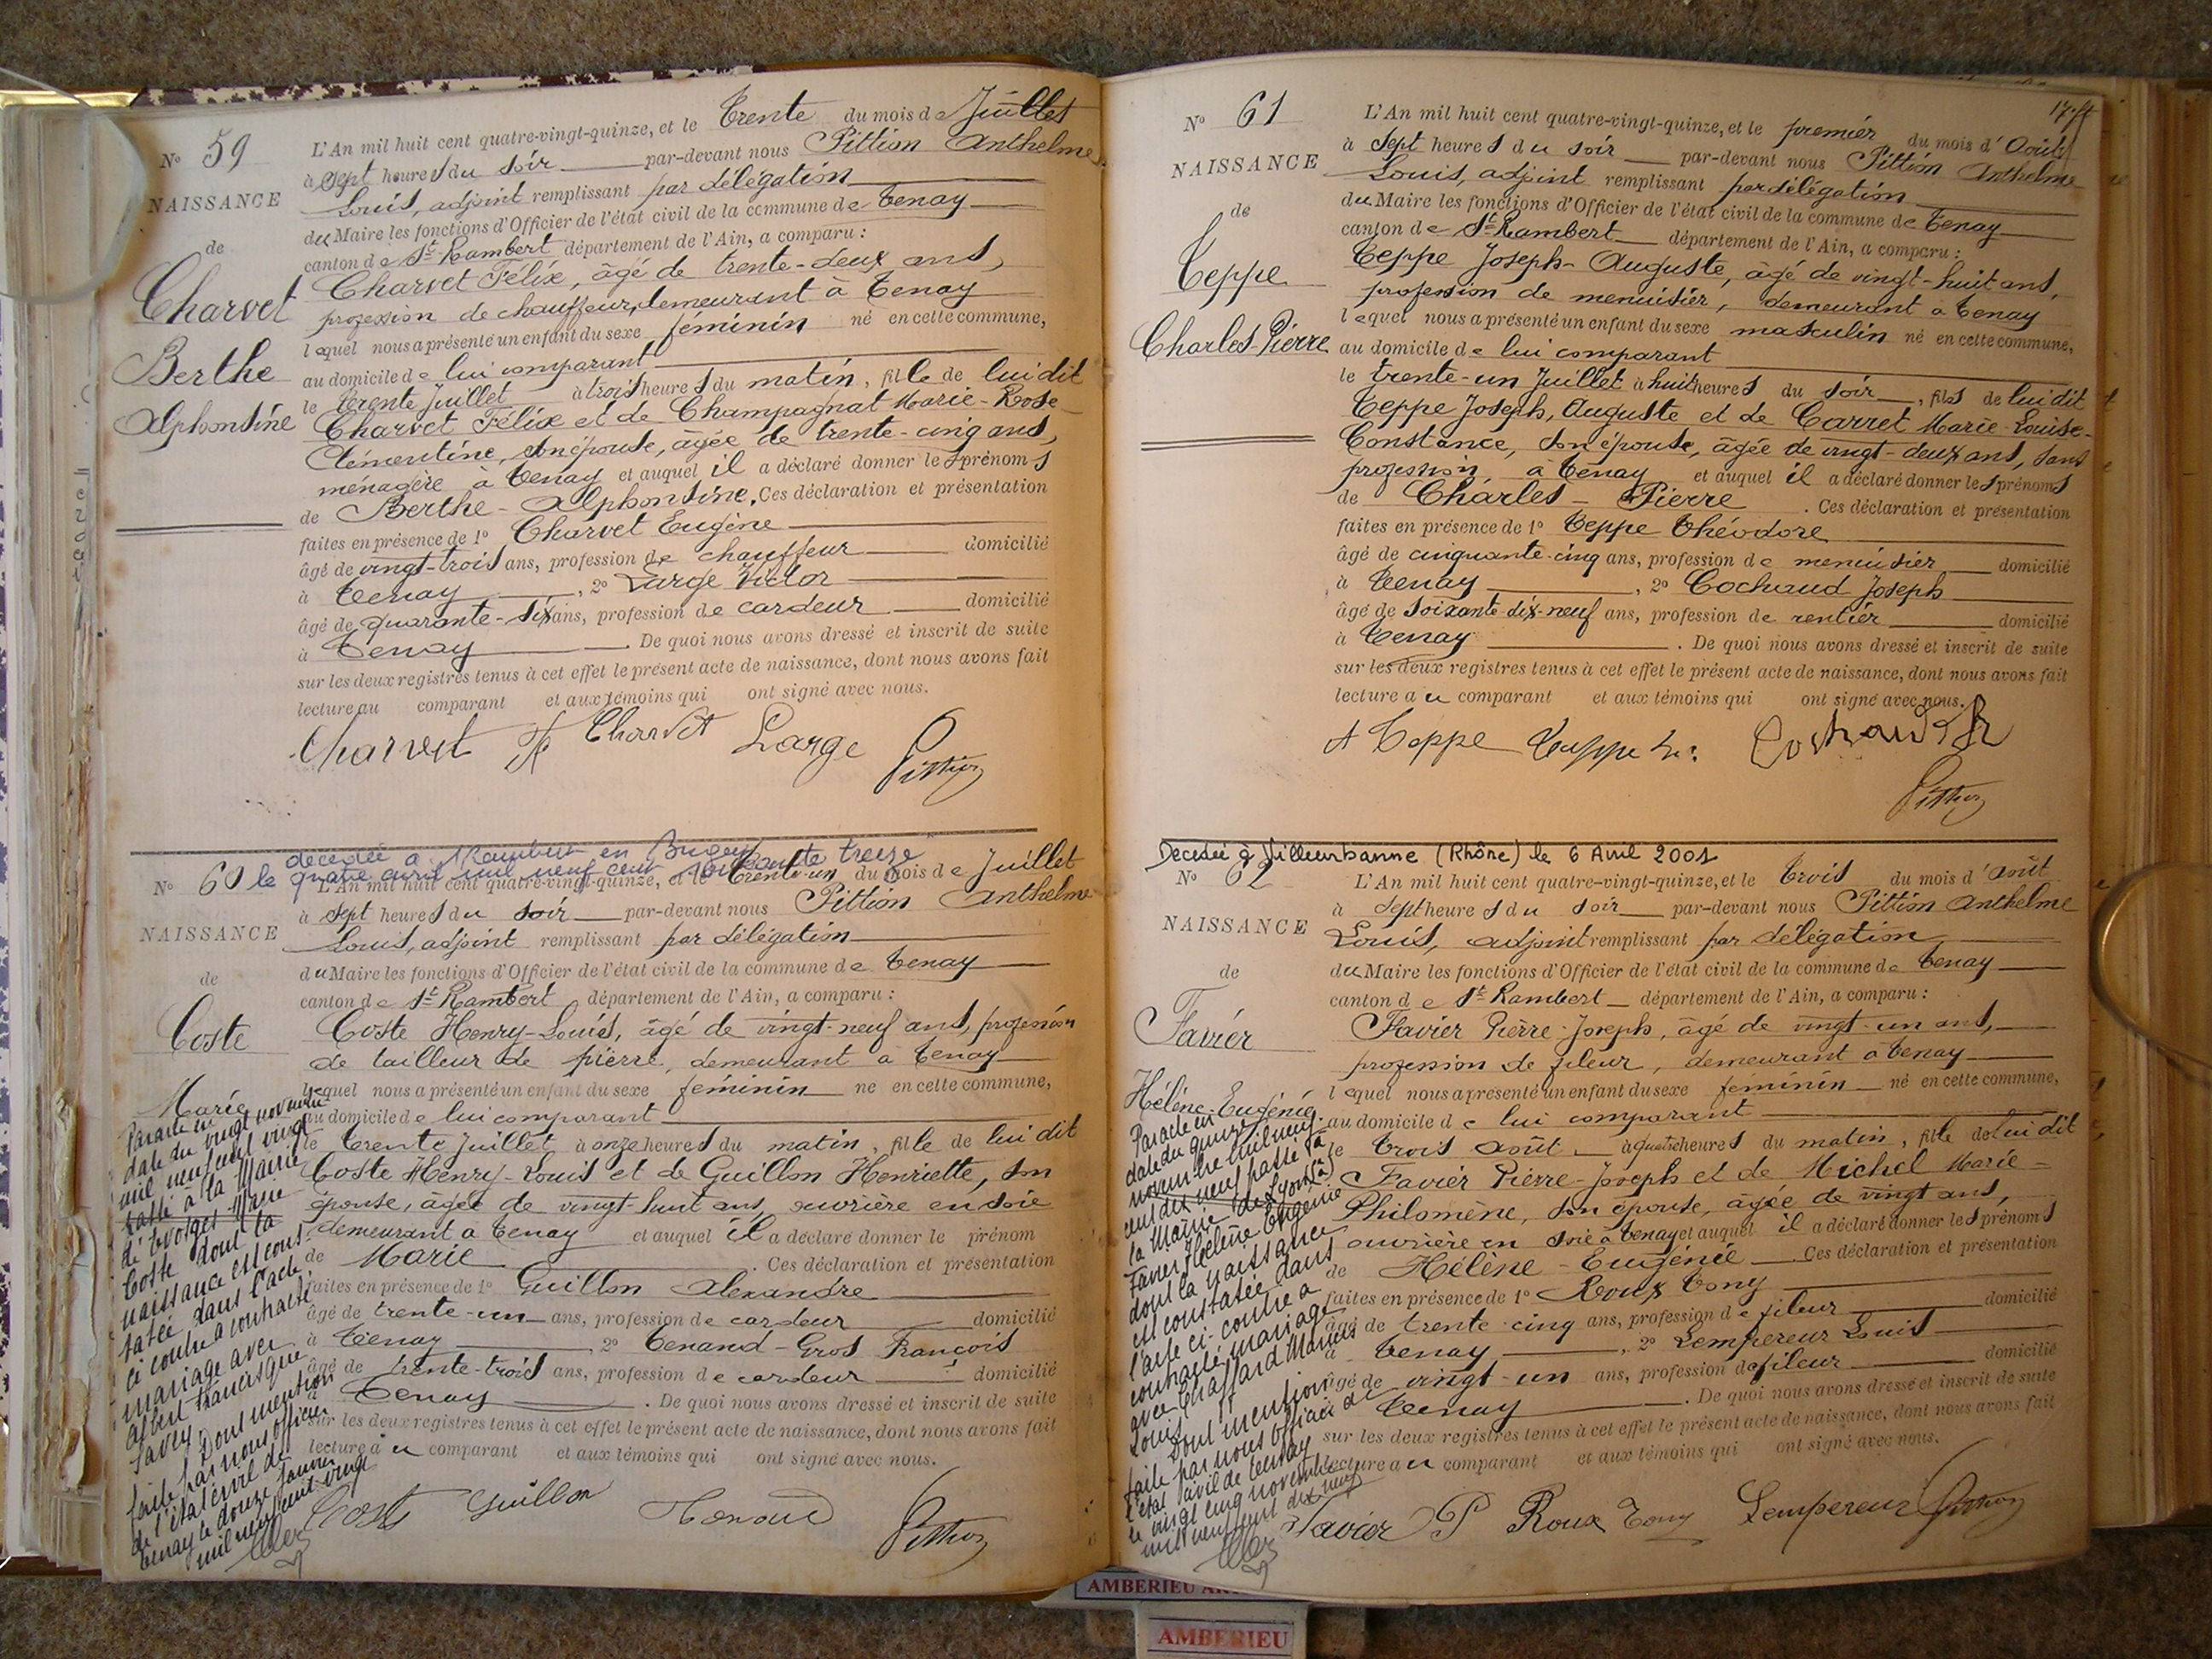 N° 59
NAISSANCE
de
Charvet
Berthe
Alphonsine
L'An mil huit cent quatre-vingt-quinze, et le trente du mois de Juillet
à Sept heures du soir par-devant nous Pittion Anthelme
Louis, adjoint remplissant par délégation
du Maire les fonctions d'Officier de l'état civil de la commune de Tenay
canton de St Rambert département de l'Ain, a comparu :
Charvet Félix, âgé de trente-deux ans,
profession de chauffeur, demeurant à Tenay
lequel nous a présenté un enfant du sexe féminin né en cette commune,
au domicile de lui comparant
le trente Juillet à trois heures du matin, fille de lui dit
Charvet Félix et de Champagnat Marie-Rose
Clémentine, son épouse, âgée de trente-cinq ans,
ménagère à Tenay et auquel il a déclaré donner les prénoms
de Berthe-Alphonsine. Ces déclaration et présentation
faites en présence de 1° Charvet Eugène
âgé de vingt-trois ans, profession de chauffeur domicilié
à Tenay, 2° Large Victor
âgé de quarante-six ans, profession de cardeur domicilié
à Tenay. De quoi nous avons dressé et inscrit de suite
sur les deux registres tenus à cet effet le présent acte de naissance, dont nous avons fait
lecture au comparant et aux témoins qui ont signé avec nous.
Charvet Charvet Large Pittion
décédée à St Rambert en Bugey
le quatre avril mil neuf cent soixante treize
N° 60
NAISSANCE
de
Coste
Marie
L'An mil huit cent quatre-vingt-quinze, et le trente-un du mois de Juillet
à Sept heures du soir par-devant nous Pittion Anthelme
Louis, adjoint remplissant par délégation
du Maire les fonctions d'Officier de l'état civil de la commune de Tenay
canton de St Rambert département de l'Ain, a comparu :
Coste Henry-Louis, âgé de vingt-neuf ans, profession
de tailleur de pierre, demeurant à Tenay
lequel nous a présenté un enfant du sexe féminin né en cette commune,
au domicile de lui comparant
le trente Juillet à onze heures du matin, fille de lui dit
Coste Henry-Louis et de Guillon Henriette, son
épouse, âgée de vingt-huit ans, ouvrière en soie
demeurant à Tenay et auquel il a déclaré donner le prénom
de Marie. Ces déclaration et présentation
faites en présence de 1° Guillon Alexandre
âgé de trente-un ans, profession de cardeur domicilié
à Tenay 2° Tenand-Gros François
âgé de trente-trois ans, profession de cardeur domicilié
à Tenay. De quoi nous avons dressé et inscrit de suite
sur les deux registres tenus à cet effet le présent acte de naissance, dont nous avons fait
lecture au comparant et aux témoins qui ont signé avec nous.
Coste Guillon Tenand Pittion
Par acte en
date du vingt novembre
mil neuf cent vingt
passé à la Mairie
de Marie
Coste dont la
naissance est cons-
tatée dans l'acte
ci contre a contracté
mariage avec
Albert Francisque
Savey. Dont mention
faite par nous officier
de l'état civil de
Tenay le douze Janvier
mil neuf cent vingt
17
N° 61
NAISSANCE
de
Teppe
Charles Pierre
L'An mil huit cent quatre-vingt-quinze, et le premier du mois d'Août
à Sept heures du soir par-devant nous Pittion Anthelme
Louis, adjoint remplissant par délégation
du Maire les fonctions d'Officier de l'état civil de la commune de Tenay
canton de St Rambert département de l'Ain, a comparu :
Teppe Joseph-Auguste, âgé de vingt-huit ans,
profession de menuisier, demeurant à Tenay
lequel nous a présenté un enfant du sexe masculin né en cette commune,
au domicile de lui comparant
le trente-un Juillet à huit heures du soir, fils de lui dit
Teppe Joseph, Auguste et de Carret Marie-Louise-
Constance, son épouse, âgée de vingt-deux ans, sans
profession à Tenay et auquel il a déclaré donner les prénoms
de Charles-Pierre. Ces déclaration et présentation
faites en présence de 1° Teppe Théodore
âgé de cinquante-cinq ans, profession de menuisier domicilié
à Tenay, 2° Cochaud Joseph
âgé de soixante-dix-neuf ans, profession de rentier domicilié
à Tenay. De quoi nous avons dressé et inscrit de suite
sur les deux registres tenus à cet effet le présent acte de naissance, dont nous avons fait
lecture au comparant et aux témoins qui ont signé avec nous.
A Teppe Teppe Cochaud Pittion
Decedée à Villeurbanne (Rhône) le 6 Avril 2001
N° 62
NAISSANCE
de
Favier
Hélène-Eugénie
L'An mil huit cent quatre-vingt-quinze, et le trois du mois d'Août
à Sept heures du soir par-devant nous Pittion Anthelme
Louis, adjoint remplissant par délégation
du Maire les fonctions d'Officier de l'état civil de la commune de Tenay
canton de St Rambert département de l'Ain, a comparu :
Favier Pierre-Joseph, âgé de vingt-un ans,
profession de fileur, demeurant à Tenay
lequel nous a présenté un enfant du sexe féminin né en cette commune,
au domicile de lui comparant
le trois août à quatre heures du matin, fille de lui dit
Favier Pierre-Joseph et de Michel Marie-
Philomène, son épouse, âgée de vingt ans,
ouvrière en soie à Tenay et auquel il a déclaré donner les prénoms
de Hélène-Eugénie. Ces déclaration et présentation
faites en présence de 1° Roux Tony
âgé de trente-cinq ans, profession de fileur domicilié
à Tenay, 2° Lempereur Louis
âgé de vingt-un ans, profession de fileur domicilié
à Tenay. De quoi nous avons dressé et inscrit de suite
sur les deux registres tenus à cet effet le présent acte de naissance, dont nous avons fait
lecture au comparant et aux témoins qui ont signé avec nous.
Favier P Roux Tony Lempereur Pittion
Par acte en
date du quinze
novembre mil neuf
cent dix neuf passé à
la Mairie de Lyon
Favier Hélène Eugénie
dont la naissance
est constatée dans
l'acte ci-contre a
contracté mariage
avec Chaffard Marius
Louis. Dont mention
faite par nous officier de
l'état civil de Tenay
le vingt cinq novembre
mil neuf cent dix neuf
AMBERIEU
AMBERIEU